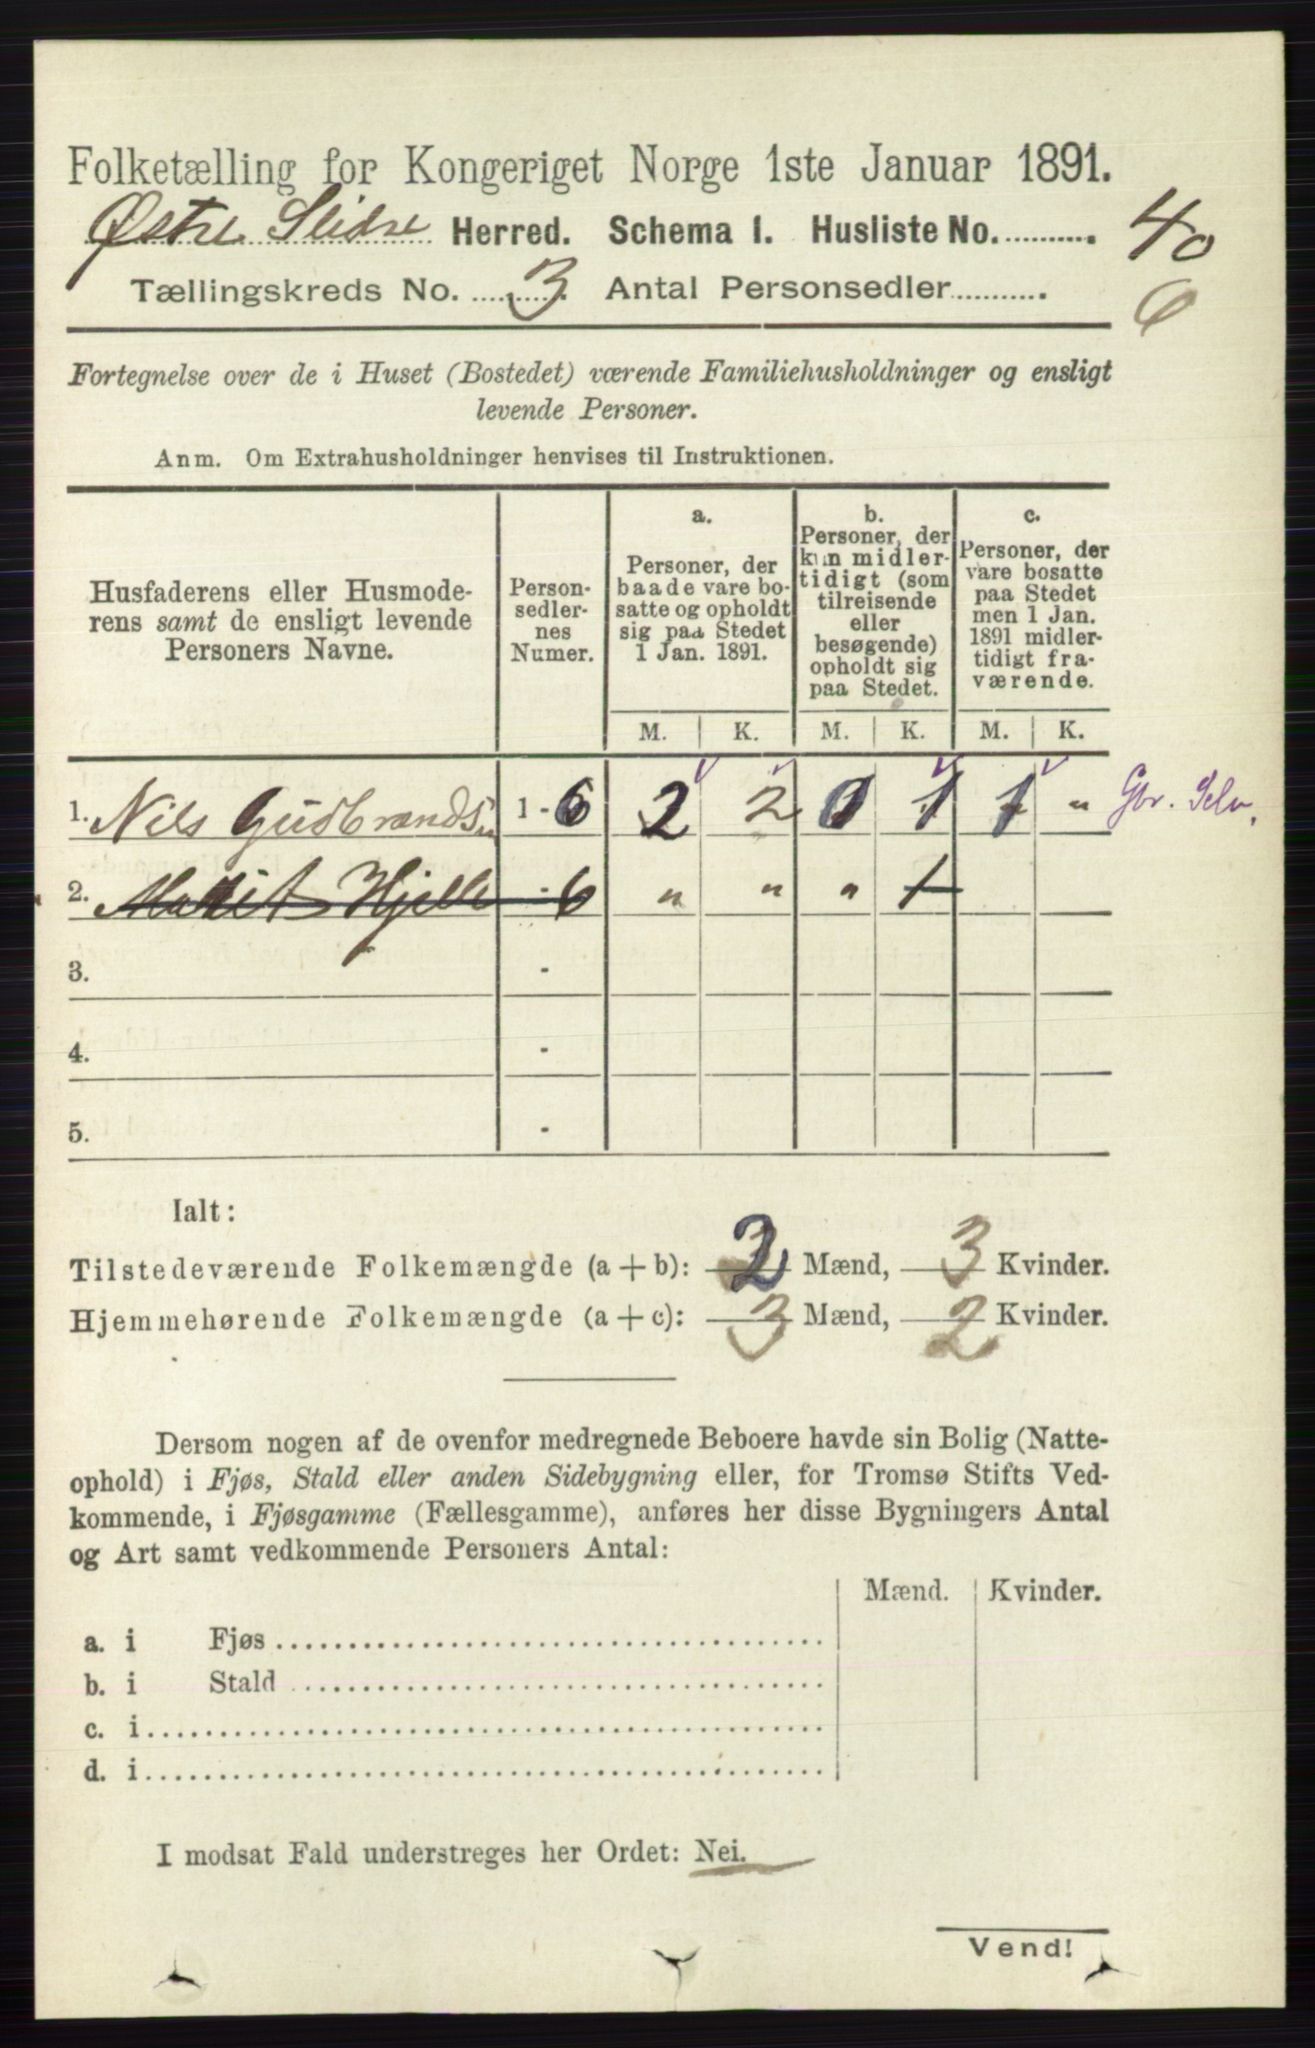 Folketælling for Kongeriget Norge 1ste Januar 1891.
Østre Slidre Herred. Schema I. Husliste No. 40
Tællingskreds No. 3. Antal Personsedler 6
Fortegnelse over de i Huset (Bostedet) værende Familiehusholdninger og ensligt
levende Personer.
Anm. Om Extrahusholdninger henvises til Instruktionen.
Husfaderens eller Husmode-
rens samt de ensligt levende
Personers Navne.
Person-
sedler-
nes
Numer.
a.
Personer, der
baade vare bo-
satte og opholdt
sig paa Stedet
1 Jan. 1891.
b.
Personer, der
kun midler-
tidigt (som
tilreisende
eller
besøgende)
opholdt sig
paa Stedet.
c.
Personer, der
vare bosatte
paa Stedet
men 1 Jan.
1891 midler-
tidigt fra-
værende.
M. K. M. K. M. K.
1. Nils Gudbrandsn 1 - 6 2 2 0 1 1 " Gbr. Selv.
2. Marit Hjelle - 6 " " " 1
3. -
4. -
5. -
Ialt:
Tilstedeværende Folkemængde (a + b): 2 Mænd, 3 Kvinder.
Hjemmehørende Folkemængde (a + c): 3 Mænd, 2 Kvinder.
Dersom nogen af de ovenfor medregnede Beboere havde sin Bolig (Natte-
ophold) i Fjøs, Stald eller anden Sidebygning eller, for Tromsø Stifts Ved-
kommende, i Fjøsgamme (Fællesgamme), anføres her disse Bygningers Antal
og Art samt vedkommende Personers Antal:
Mænd. Kvinder.
a. i Fjøs
b. i Stald
c. i
d. i
I modsat Fald understreges her Ordet: Nei.
Vend!